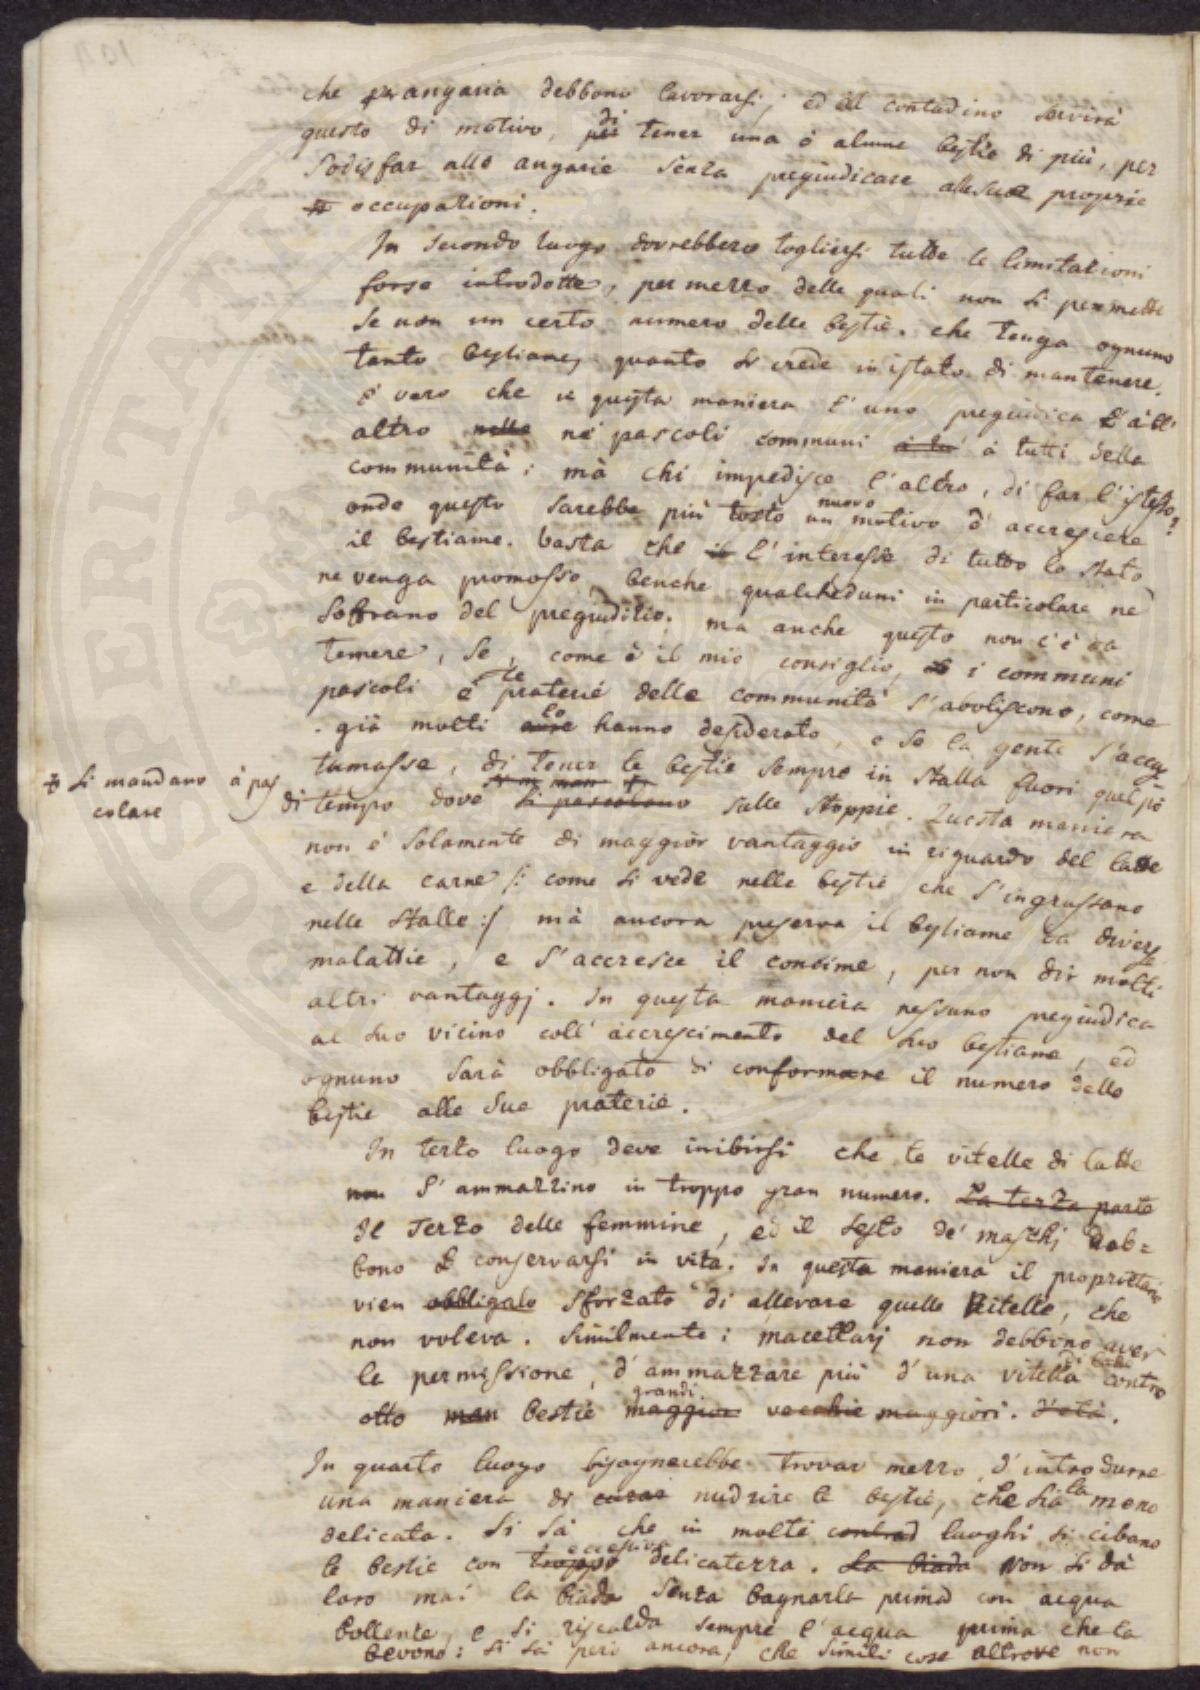 che per angaria debbono lavorarsi; ed il contadino servirà
questo di motivo, di tener una ò alcune bestie di più, per
sodisfar alle angarie senza pregiudicare alle sue proprie
occupazioni.
In secondo luogo dovrebbero togliersi tutte le limitazioni
forse introdotte, per mezzo delle quali non si permette
se non un certo numero delle bestie. che tenga ognuno
tanto bestiame, quanto si crede in istato di mantenere.
è vero che in questa maniera l'uno pregiudica all'
altro nelle ne' pascoli communi à tutti della
communità; mà chi impedisce l'altro, di far l'istesso?
onde questo sarebbe più tosto un nuovo motivo d'accrescere
il bestiame. basta che il l'interesse di tutto lo stato
ne venga promosso, benche qualcheduni in particolare ne
soffrano del pregiudizio. ma anche questo non c'è da
temere, se, come è il mio consiglio, i communi
pascoli e le praterie delle communità s'aboliscono, come
già molti lo hanno desiderato, e se la gente s'accos-
tumasse, di tener le bestie sempre in stalla fuori quel pò
di tempo dove si pascolano sulle stoppie. Questa maniera
# si mandano à pas
colare
non è solamente di maggior vantaggio in riguardo del latte
e della carne /: come si vede nelle bestie che s'ingrassano
nelle stalle :/ mà ancora preserva il bestiame da diverse
malattie, e s'accresce il concime, per non dir molti
altri vantaggj. In questa maniera nessuno pregiudica
al suo vicino coll'accrescimento del suo bestiame, ed
ognuno sarà obbligato di conformare il numero delle
bestie alle sue praterie.
In terzo luogo deve inibirsi che le vitelle di latte
non s'ammazzino in troppo gran numero. La terza parte
Il Terzo delle femmine, ed il sesto de' maschj deb=
bono conservarsi in vita. In questa maniera il proprietario
vien obbligato sforzato di allevare quelle vitelle, che
non voleva. Similmente i macellarj non debbono aver
la permissione, d'ammazzare più d'una vitella di latte contro
otto bestie grandi maggiori vecchie maggiori. d'età.
In quarto luogo bisognerebbe trovar mezzo d'introdurre
una maniera di curar nudrire le bestie, che sia la meno
delicata. Si sà che in molti contrad luoghi si cibano
le bestie con troppo eccessiva delicatezza. La biada Non si dà
loro mai la biada senza bagnarla prima con acqua
bollente, e si riscalda sempre l'acqua prima che la
bevono: si sà però ancora, che simili cose altrove non